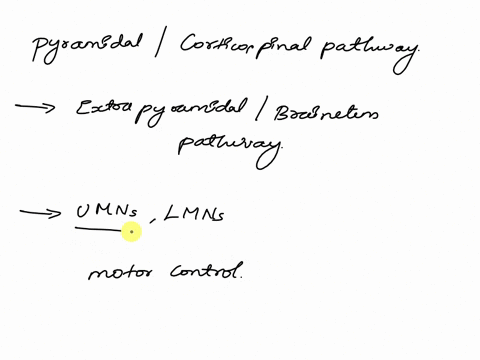 Pyramidal / Corticospinal pathway.
→ Extrapyramidal / Brainstem pathway.
→ UMNs, LMNs
motor control.